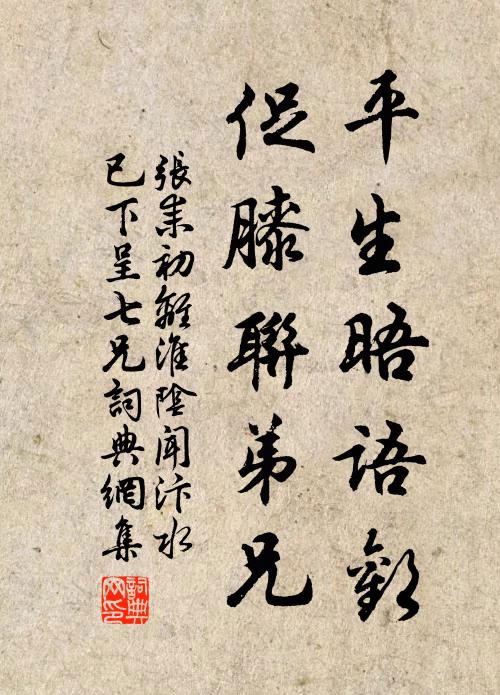 平生晤語歡
促膝聯弟兄
張耒初離淮陰聞汴水
已下呈七兄詞典網集
詞典
网印